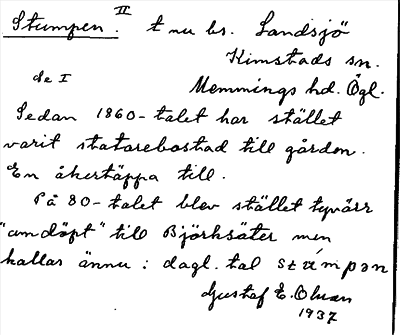 Stumpen. II t nu bs. Landsjö
Kimstads sn.
se I Memmings hd. Ögl.
Sedan 1860-talet har stället
varit statarebostad till gården.
En åkertäppa till.
På 80-talet blev stället tyvärr
"omdöpt" till Björksäter men
kallas ännu i dagl. tal stúmpən
Gustaf E. Olsson
1937